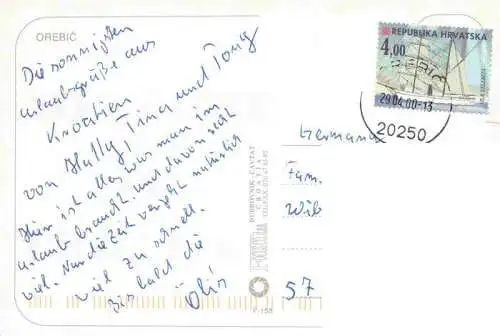 OREBIĆ
Die sonnigsten
Urlaubsgrüße aus
Kroatien
von Hally, Tina und Tony
Hier ist alles was man im
Urlaub braucht. und davon recht
viel. Nur die Zeit vergeht natürlich
viel zu schnell.
bis bald die
REPUBLIKA HRVATSKA
4,00
29.04.00-13
20250
Germana
Fam.
Wib
57
DUBROVNIK - CAVTAT
CROATIA
F-158